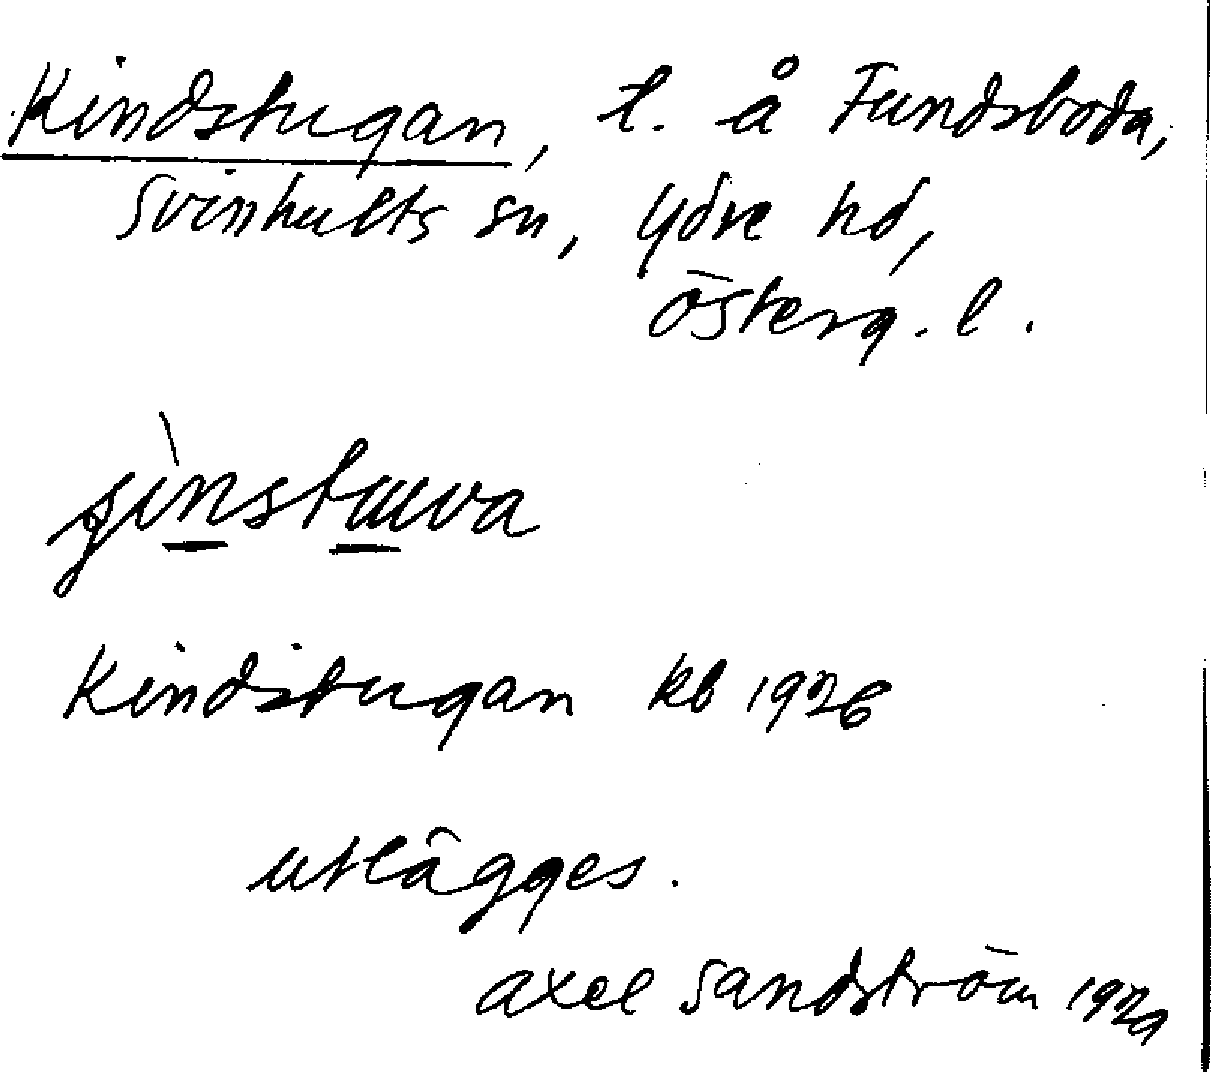 Kindstugan, t. å Fundsboda,
Svinhults sn, Ydre hd,
Österg. l.
Kindstugan kb 1926
utlägges.
Axel Sandström 1929